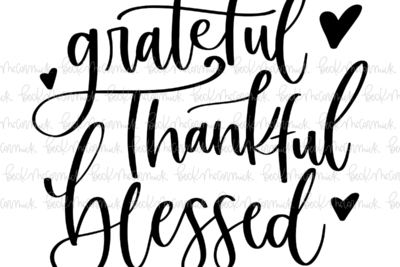 grateful
Thankful
blessed